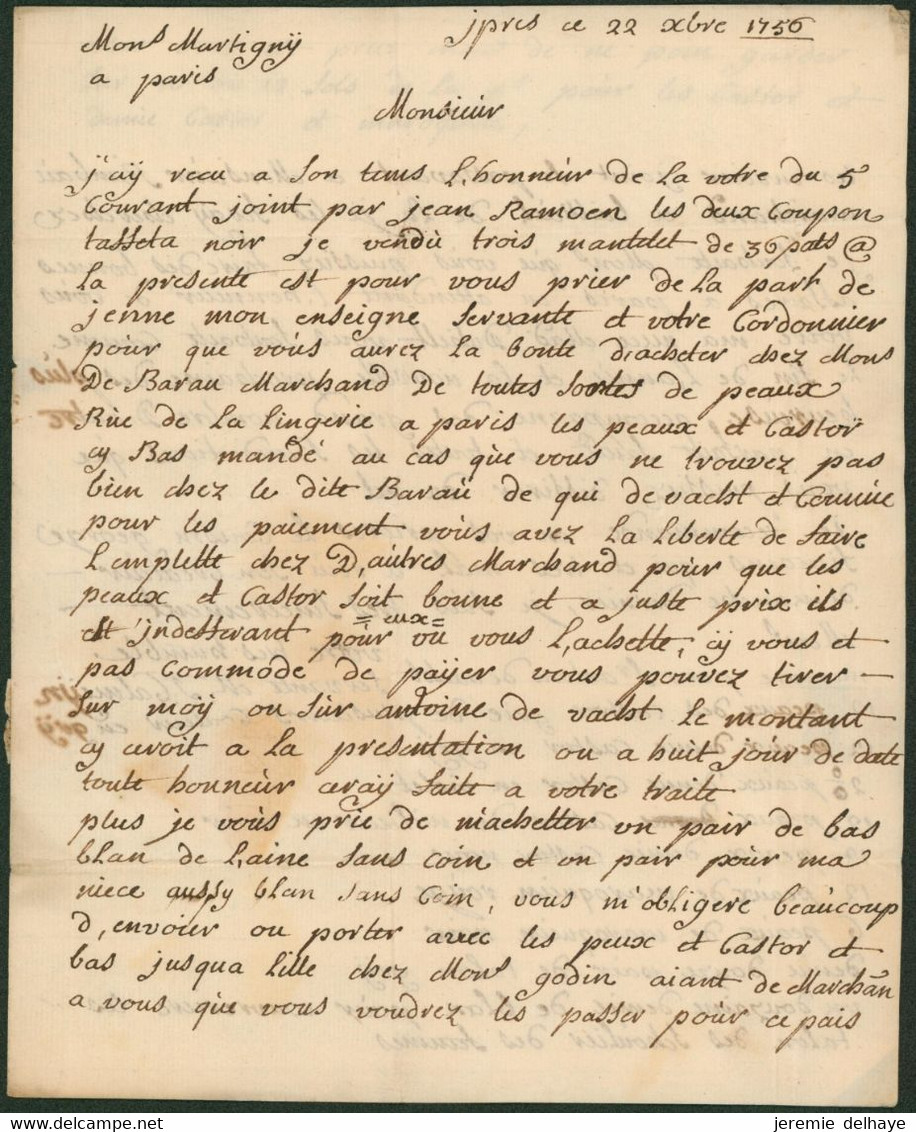 jpres ce 22 xbre 1756
Mons Martignÿ
a paris
Monsieur
j'aÿ recu a son tems L,honneur de la votre du 5
Courant joint par jean Ramoen les deux Coupon
tasseta noir je vendu trois mantelet de 36 pats @
La presente est pour vous prier de la part de
jenne mon enseigne servante et votre Cordonnier
pour que vous aurez la bonte d,acheter chez Mons
De Barau Marchand De toutes sortes de peaux
Rue de La Lingerie a paris les peaux et Castor
cy Bas mandé au cas que vous ne trouvez pas
bien chez le dite Barau de qui de vacht et Connue
pour les paiement vous avez La Liberte de faire
Lemplette chez D,autres Marchand pour que les
peaux et Castor soit bonne et a juste prix ils
= eux =
et jndifferant pour ou vous L,achette, cy vous et
pas commode de payer vous pouvez tirer —
sur moy ou sur antoine de vacht Le montant
cy ceroit a la presentation ou a huit jour de date
toute honneur ceraÿ faite a votre traite
plus je vous prie de m'achetter un pair de bas
blan de Laine sans coin et on pair pour ma
niece aussy blan sans Coin, vous m'obligere beaucoup
d,envoier ou porter avec les peux et Castor et
bas jusqua lille chez Mons godin aiant de Marchan
a vous que vous voudrez les passer pour ce pais
jeremie delhaye